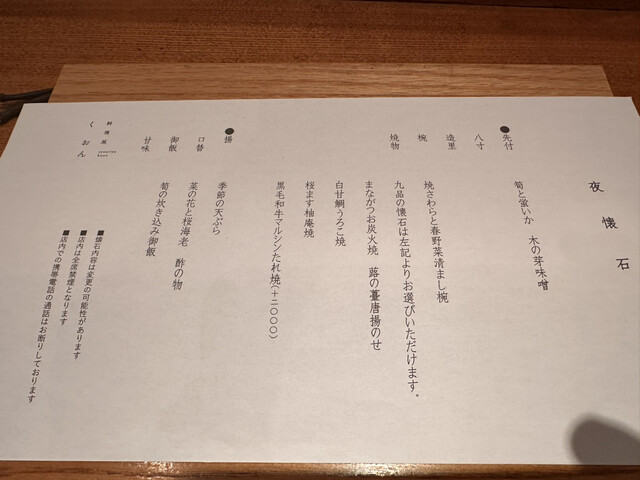 夜懐石
●先付
筍と蛍いか 木の芽味噌
八寸
造里
椀
焼さわらと春野菜清まし椀
焼物
九品の懐石は左記よりお選びいただけます。
まながつお炭火焼 蕗の薹唐揚のせ
白甘鯛うろこ焼
桜ます柚庵焼
黒毛和牛マルシンたれ焼(+二〇〇〇)
●揚
季節の天ぷら
口替
菜の花と桜海老 酢の物
御飯
筍の炊き込み御飯
甘味
■懐石内容は変更の可能性があります
■店内は全席禁煙となります
■店内での携帯電話の通話はお断りしております
くおん